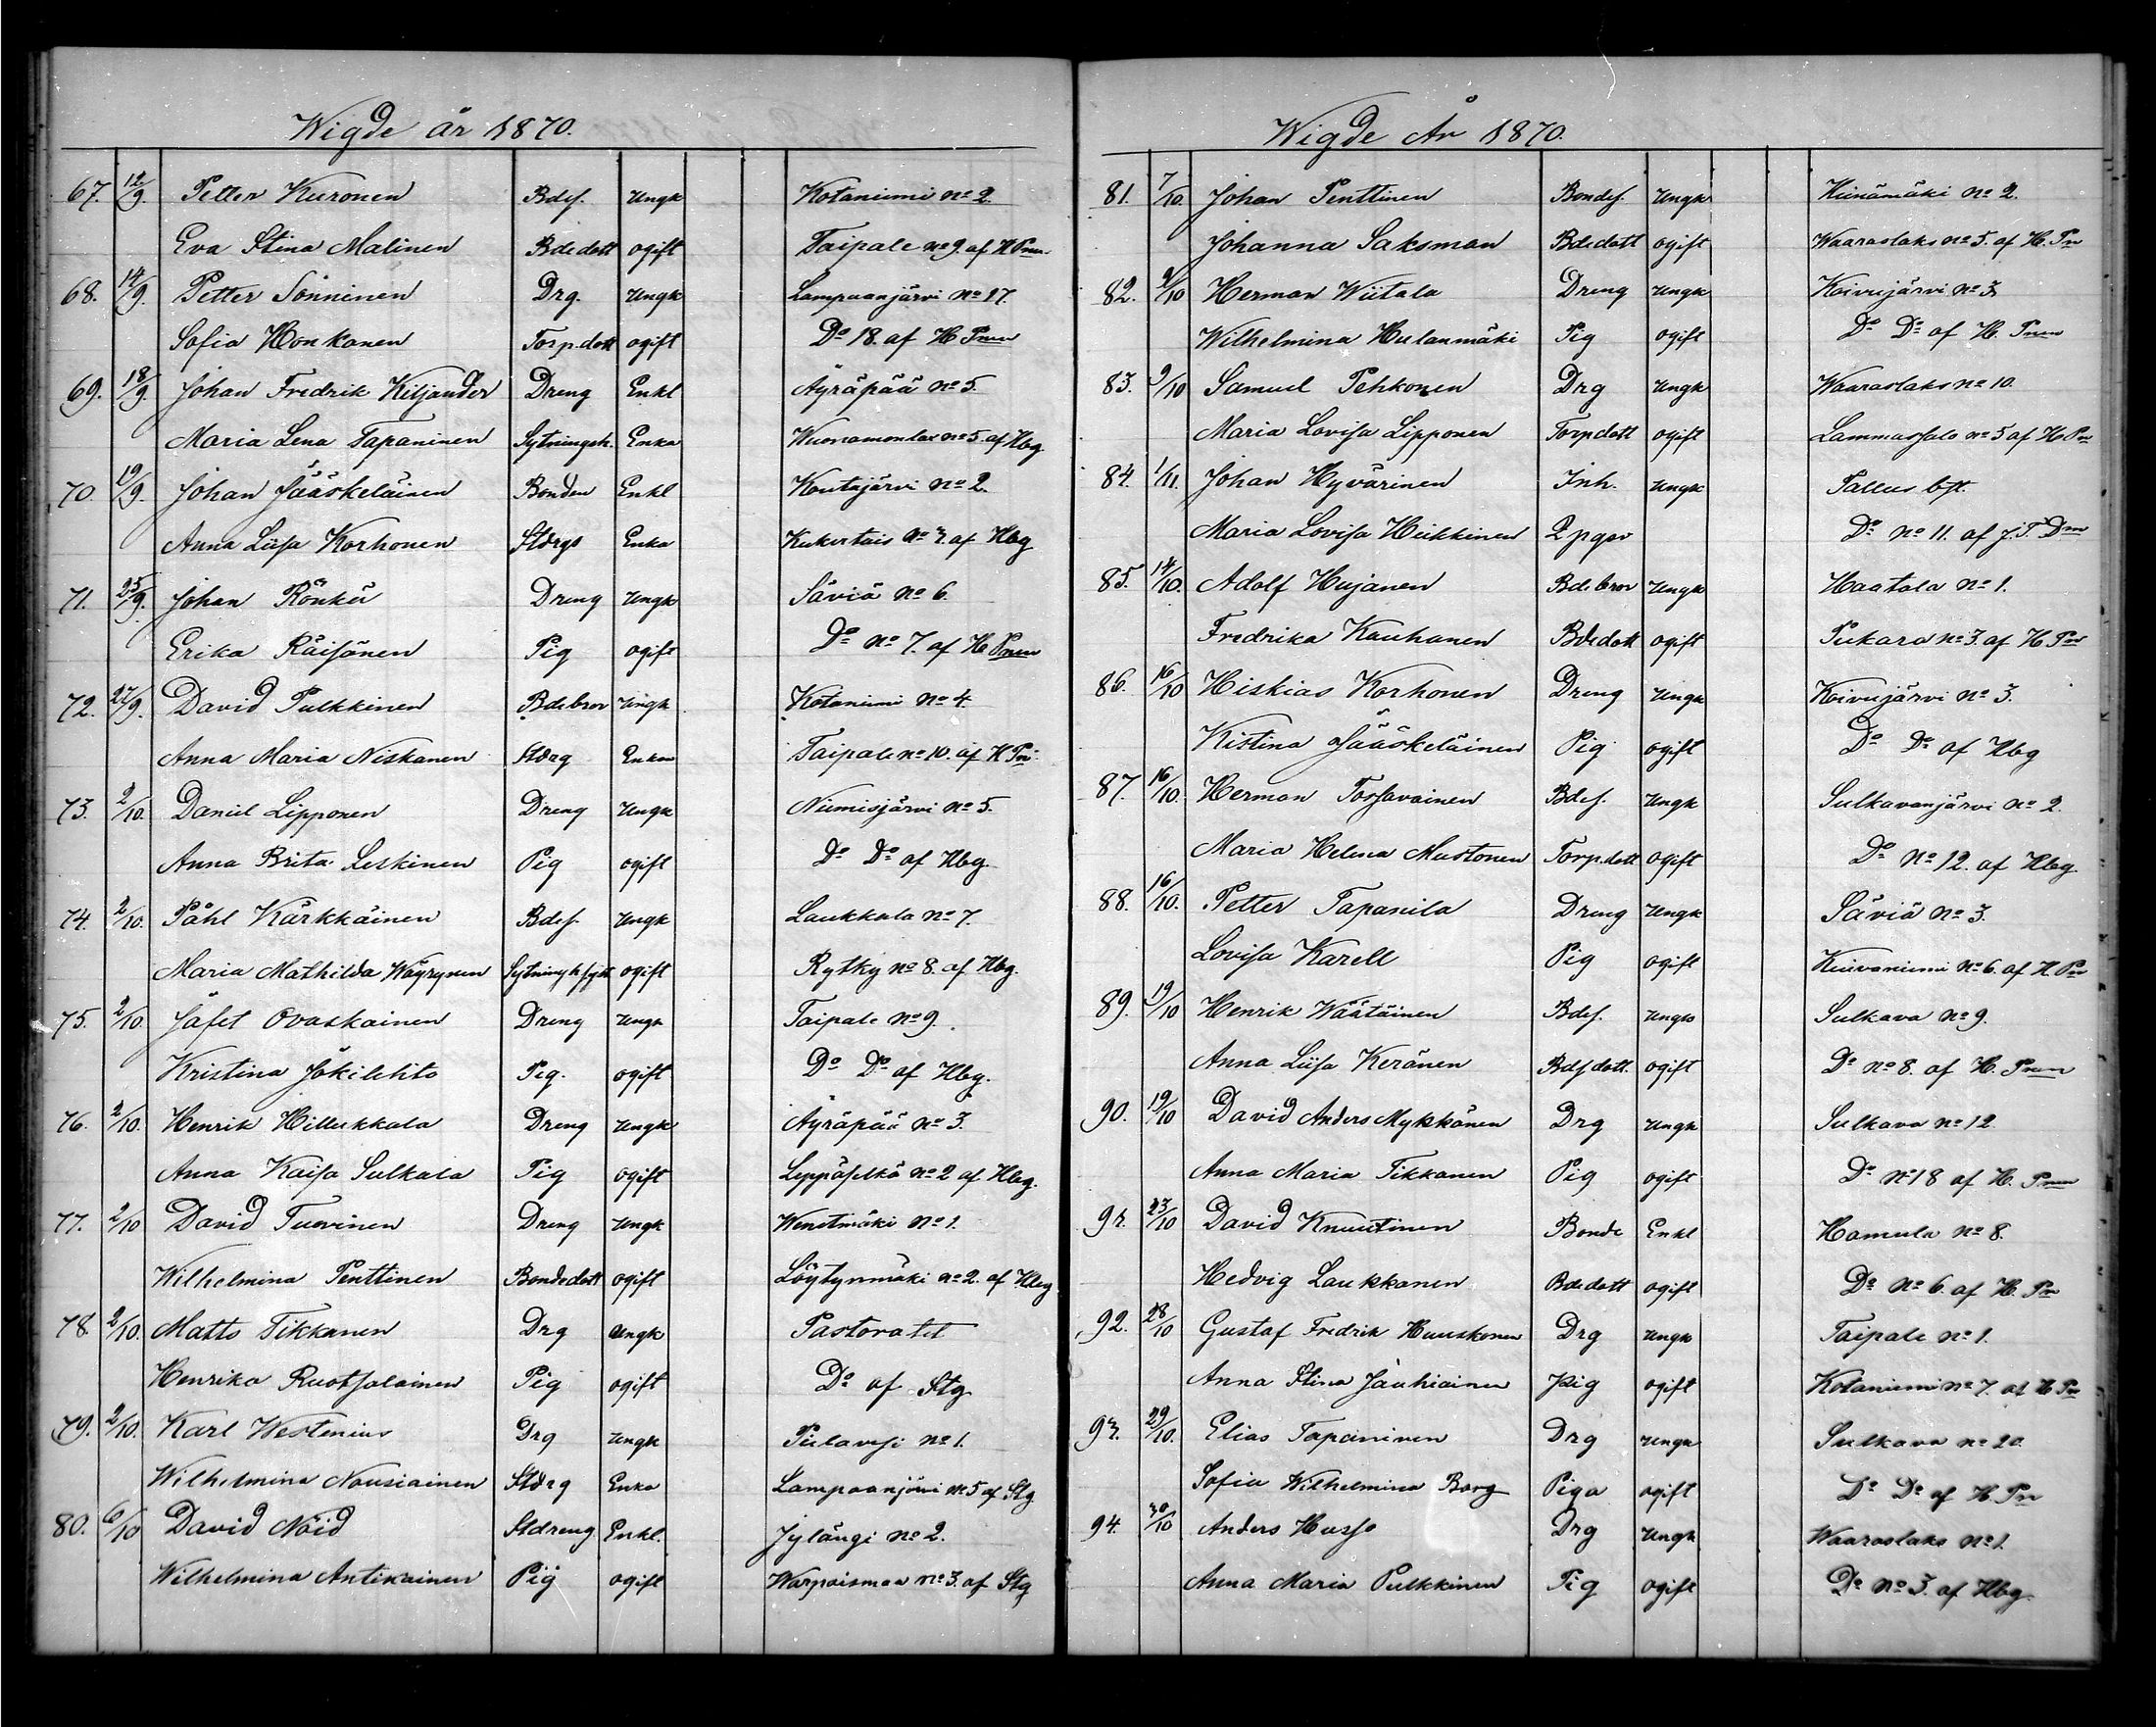 Wigde år 1870.
67. 12/9. Petter Kuronen Bdes. Ungk Kotaniemi No 2.
Eva Stina Malinen Bdedott ogift Taipale No 9. af H Pnen
68. 14/9. Petter Sonninen Drg. Ungk Lampaanjärvi No 17.
Sofia Honkanen Torp.dott ogift Do 18. af H Pnen
69. 18/9. Johan Fredrik Kiljander Dreng Enkl Äyräpää No 5.
Maria Lena Tapaninen Sytningsh. Enka No 5. af Hbg
70. 19/9. Johan Jääskeläinen Bonden Enkl Koutajärvi No 2.
Anna Liisa Korhonen Stdrgs Enka af Hbg
71. 25/9. Johan Rönkä Dreng Ungk Säviä No 6.
Erika Räisänen Pig ogift Do No 7. af H Pnen
72. 27/9. David Pulkkinen Bdebror Ungk Kotaniemi No 4.
Anna Maria Niskanen Stdrg Enkan Taipale No 10. af H Pn
73. 2/10. Daniel Lipponen Dreng Ungk Niemisjärvi No 5.
Anna Brita Leskinen Pig ogift Do Do af Hbg
74. 2/10. Påhl Kärkkäinen Bdes. Ungk Laukkala No 7.
Maria Mathilda Wäyrynen ogift Rytky No 8. af Hbg.
75. 2/10. Jafet Ovaskainen Dreng Ungk Taipale No 9.
Kristina Jokilehto Pig. ogift Do Do af Hbg.
76. 2/10. Henrik Hillukkala Dreng Ungk Äyräpää No 3.
Anna Kaisa Sulkala Pig ogift Leppäselkä No 2 af Hbg.
77. 2/10 David Tuovinen Dreng Ungk Wenetmäki No 1.
Wilhelmina Penttinen Bondedott ogift Löytynmäki No 2. af Hbg
78. 2/10. Matts Tikkanen Drg Ungk Pastoratet
Henrika Ruotsalainen Pig ogift Do af Stg
79. 2/10. Karl Westenius Drg Ungk Pielavesi No 1.
Wilhelmina Nousiainen Stdrg Enka Lampaanjärvi No 5 af Stg
80. 6/10 David Nöid Stdreng Enkl. Jylängi No 2.
Wilhelmina Antikainen Pig ogift Warpaismaa No 3. af Stg
Wigde År 1870.
81. 7/10. Johan Penttinen Bondes. Ungk No 2.
Johanna Saksman Bdedott ogift Waaraslaks No 5. af H. Pn
82. 9/10 Herman Wiitala Dreng Ungk Koivujärvi No 3
Wilhelmina Hulanmäki Pig ogift Do Do af H. Pnen
83. 9/10 Samuel Pehkonen Drg Ungk Waaraslaks No 10.
Maria Lovisa Lipponen Torpdott ogift Lammassalo No 5 af H Pn
84. 1/11. Johan Hyvärinen Inh. Ungk Pallus
Maria Lovisa Heikkinen Do No 11. af
85. 14/10. Adolf Hujanen Bdebror Ungk Haatala No 1.
Fredrika Kauhanen Bdedott ogift Pukara No 3. af H Pn
86. 16/10 Hiskias Korhonen Dreng Ungk Koivujärvi No 3.
Kistina Jääskeläinen Pig ogift Do Do af Hbg
87. 16/10. Herman Tossavainen Bdes. Ungk Sulkavanjärvi No 2.
Maria Helena Mustonen Torpdott ogift Do No 12. af Hbg
88. 16/10. Petter Tapanila Dreng Ungk Säviä No 3.
Lovisa Karell Pig ogift No 6. af H Pn
89. 19/10 Henrik Wäätäinen Bdes. Ungk Sulkava No 9.
Anna Liisa Keränen Bdsdott. ogift Do No 8. af H. Pnen
90. 19/10 David Anders Mykkänen Drg Ungk Sulkava No 12
Anna Maria Tikkanen Pig ogift Do No 18 af H. Pnen
91. 23/10 David Knuutinen Bonde Enkl Hamula No 8.
Hedvig Laukkanen Bdedott ogift Do No 6. af H. Pn
92. 28/10 Gustaf Fredrik Huuskonen Drg Ungk Taipale No 1.
Anna Stina Jauhiainen Pig ogift Kotaniemi No 7. af H Pn
93. 29/10. Elias Tapaninen Drg Ungk Sulkava No 20.
Sofia Wilhelmina Borg Piga ogift Do Do af H Pn
94. 30/10 Anders Husso Drg Ungk Waaraslaks No 1.
Anna Maria Pulkkinen Pig ogift Do No 3. af Hbg